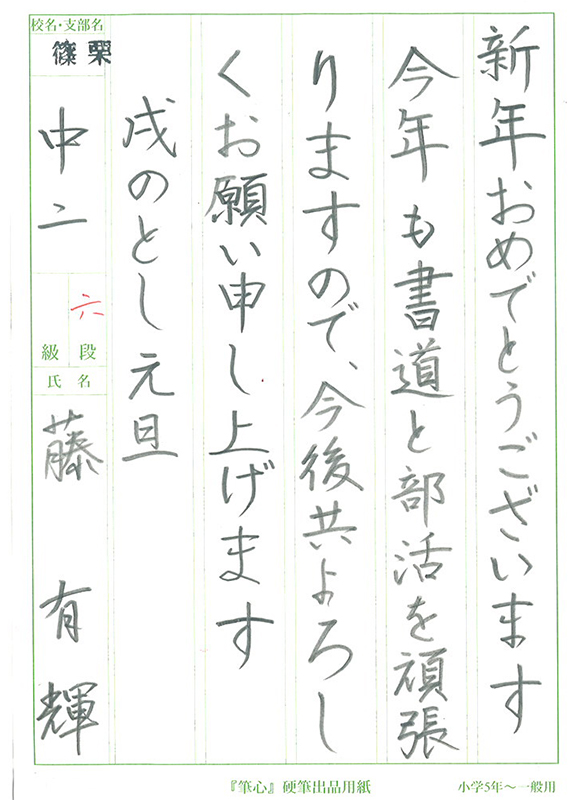 新年おめでとうございます
今年も書道と部活を頑張
りますので、今後共よろし
くお願い申し上げます
戌のとし元旦
校名・支部名
篠栗
中二
六
級 段
氏 名
藤 有輝
『筆心』硬筆出品用紙
小学5年～一般用